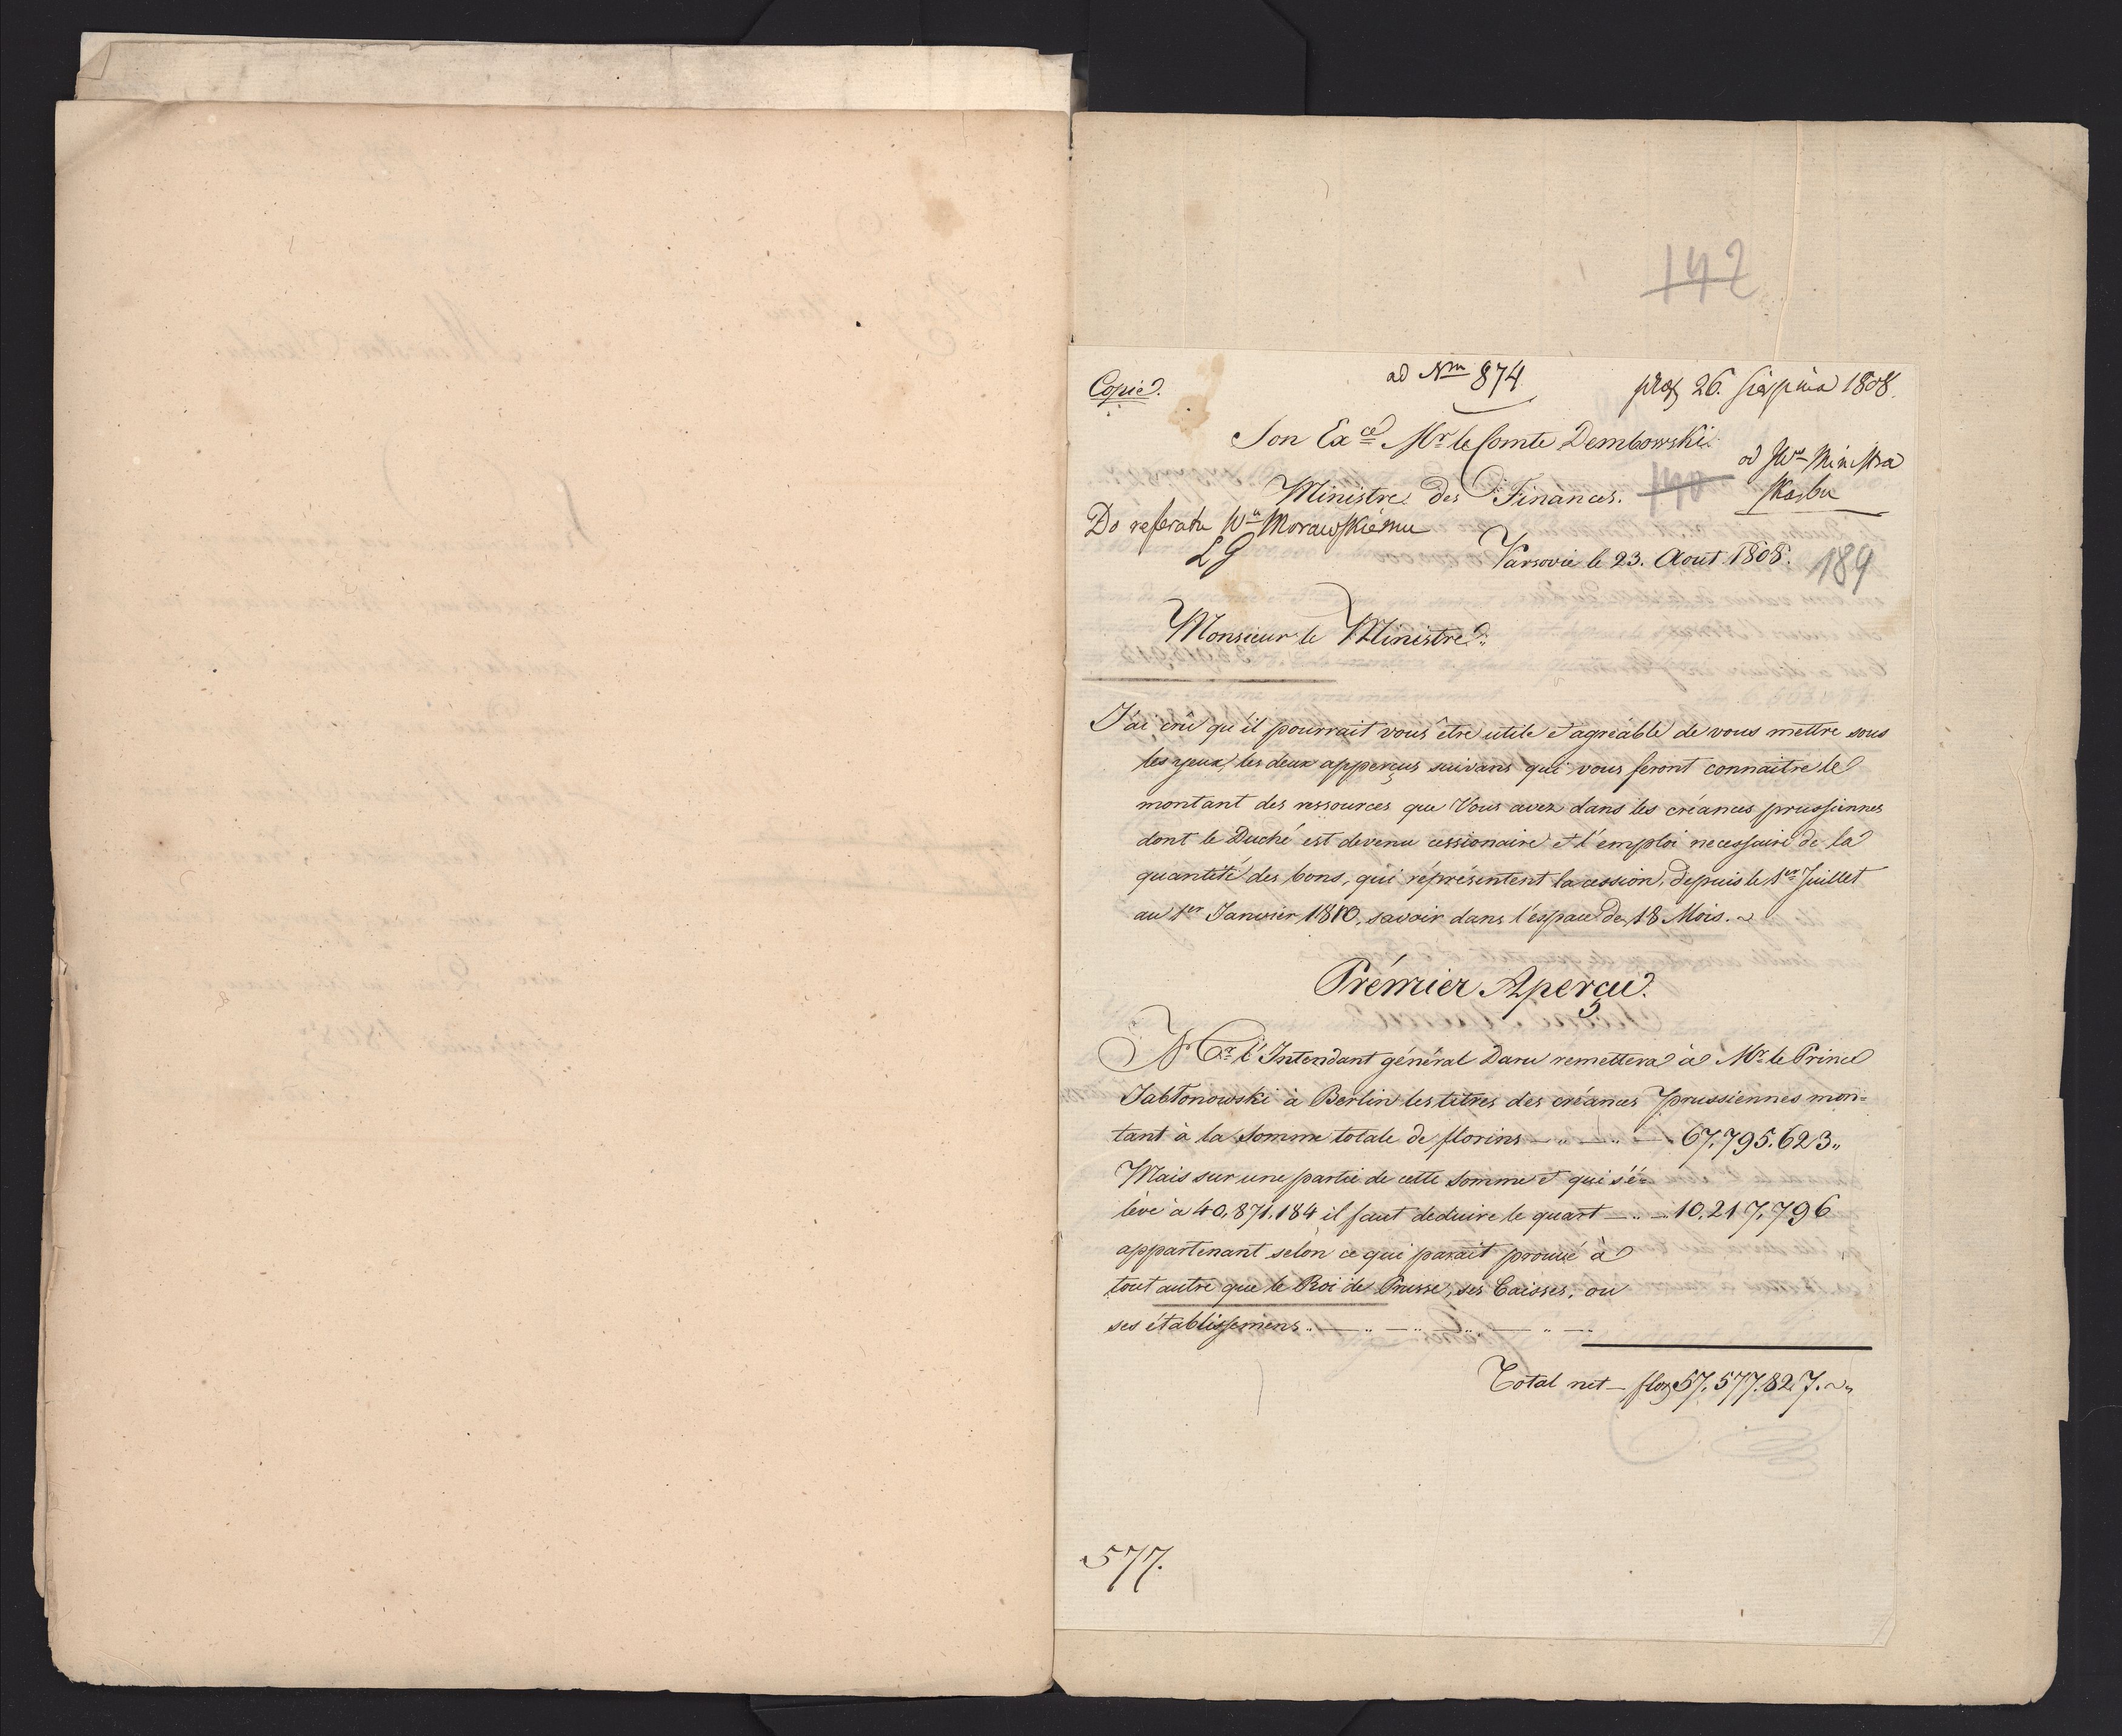 142
Copie.
ad Nm 874
præs 26. sierpnia 1808.
Son Exce Mr le Comte Dembowski
od JWo Ministra
Ministre des Finances.
140
Skarbu
Do referatu Wu Morawskiému
LG
Varsovie le 23. Aout 1808.
189
Monsieur le Ministre
J'ai crû qu'il pourrait vous être utile et agréable de vous mettre sous
les yeux, les deux apperçus suivans qui vous feront connaitre le
montant des ressources que Vous avez dans les créances prussiennes
dont le Duché est devenu cessionaire et l'emploi necessaire de la
quantité des bons, qui réprésentent la cession, depuis le 1er Juillet
au 1er Janvier 1810, savoir dans l'espace de 18 Mois.
Prémier Aperçu.
Mr l'Intendant général Daru remettera à Mr le Prince
Jabłonowski à Berlin les titres des créances prussiennes mon=
tant à la somme totale de florins — „ — „ — 67,795.623„
Mais sur une partie de cette somme et qui s'é=
lève à 40,871.184 il faut deduire le quart — „ — 10.217,796
appartenant selon ce qui parait prouvé à
tout autre que le Roi de Prusse, ses Caisses, ou
ses établissemens „ — „ — „ — „ —
Total net — flor 57,577.827.
577.